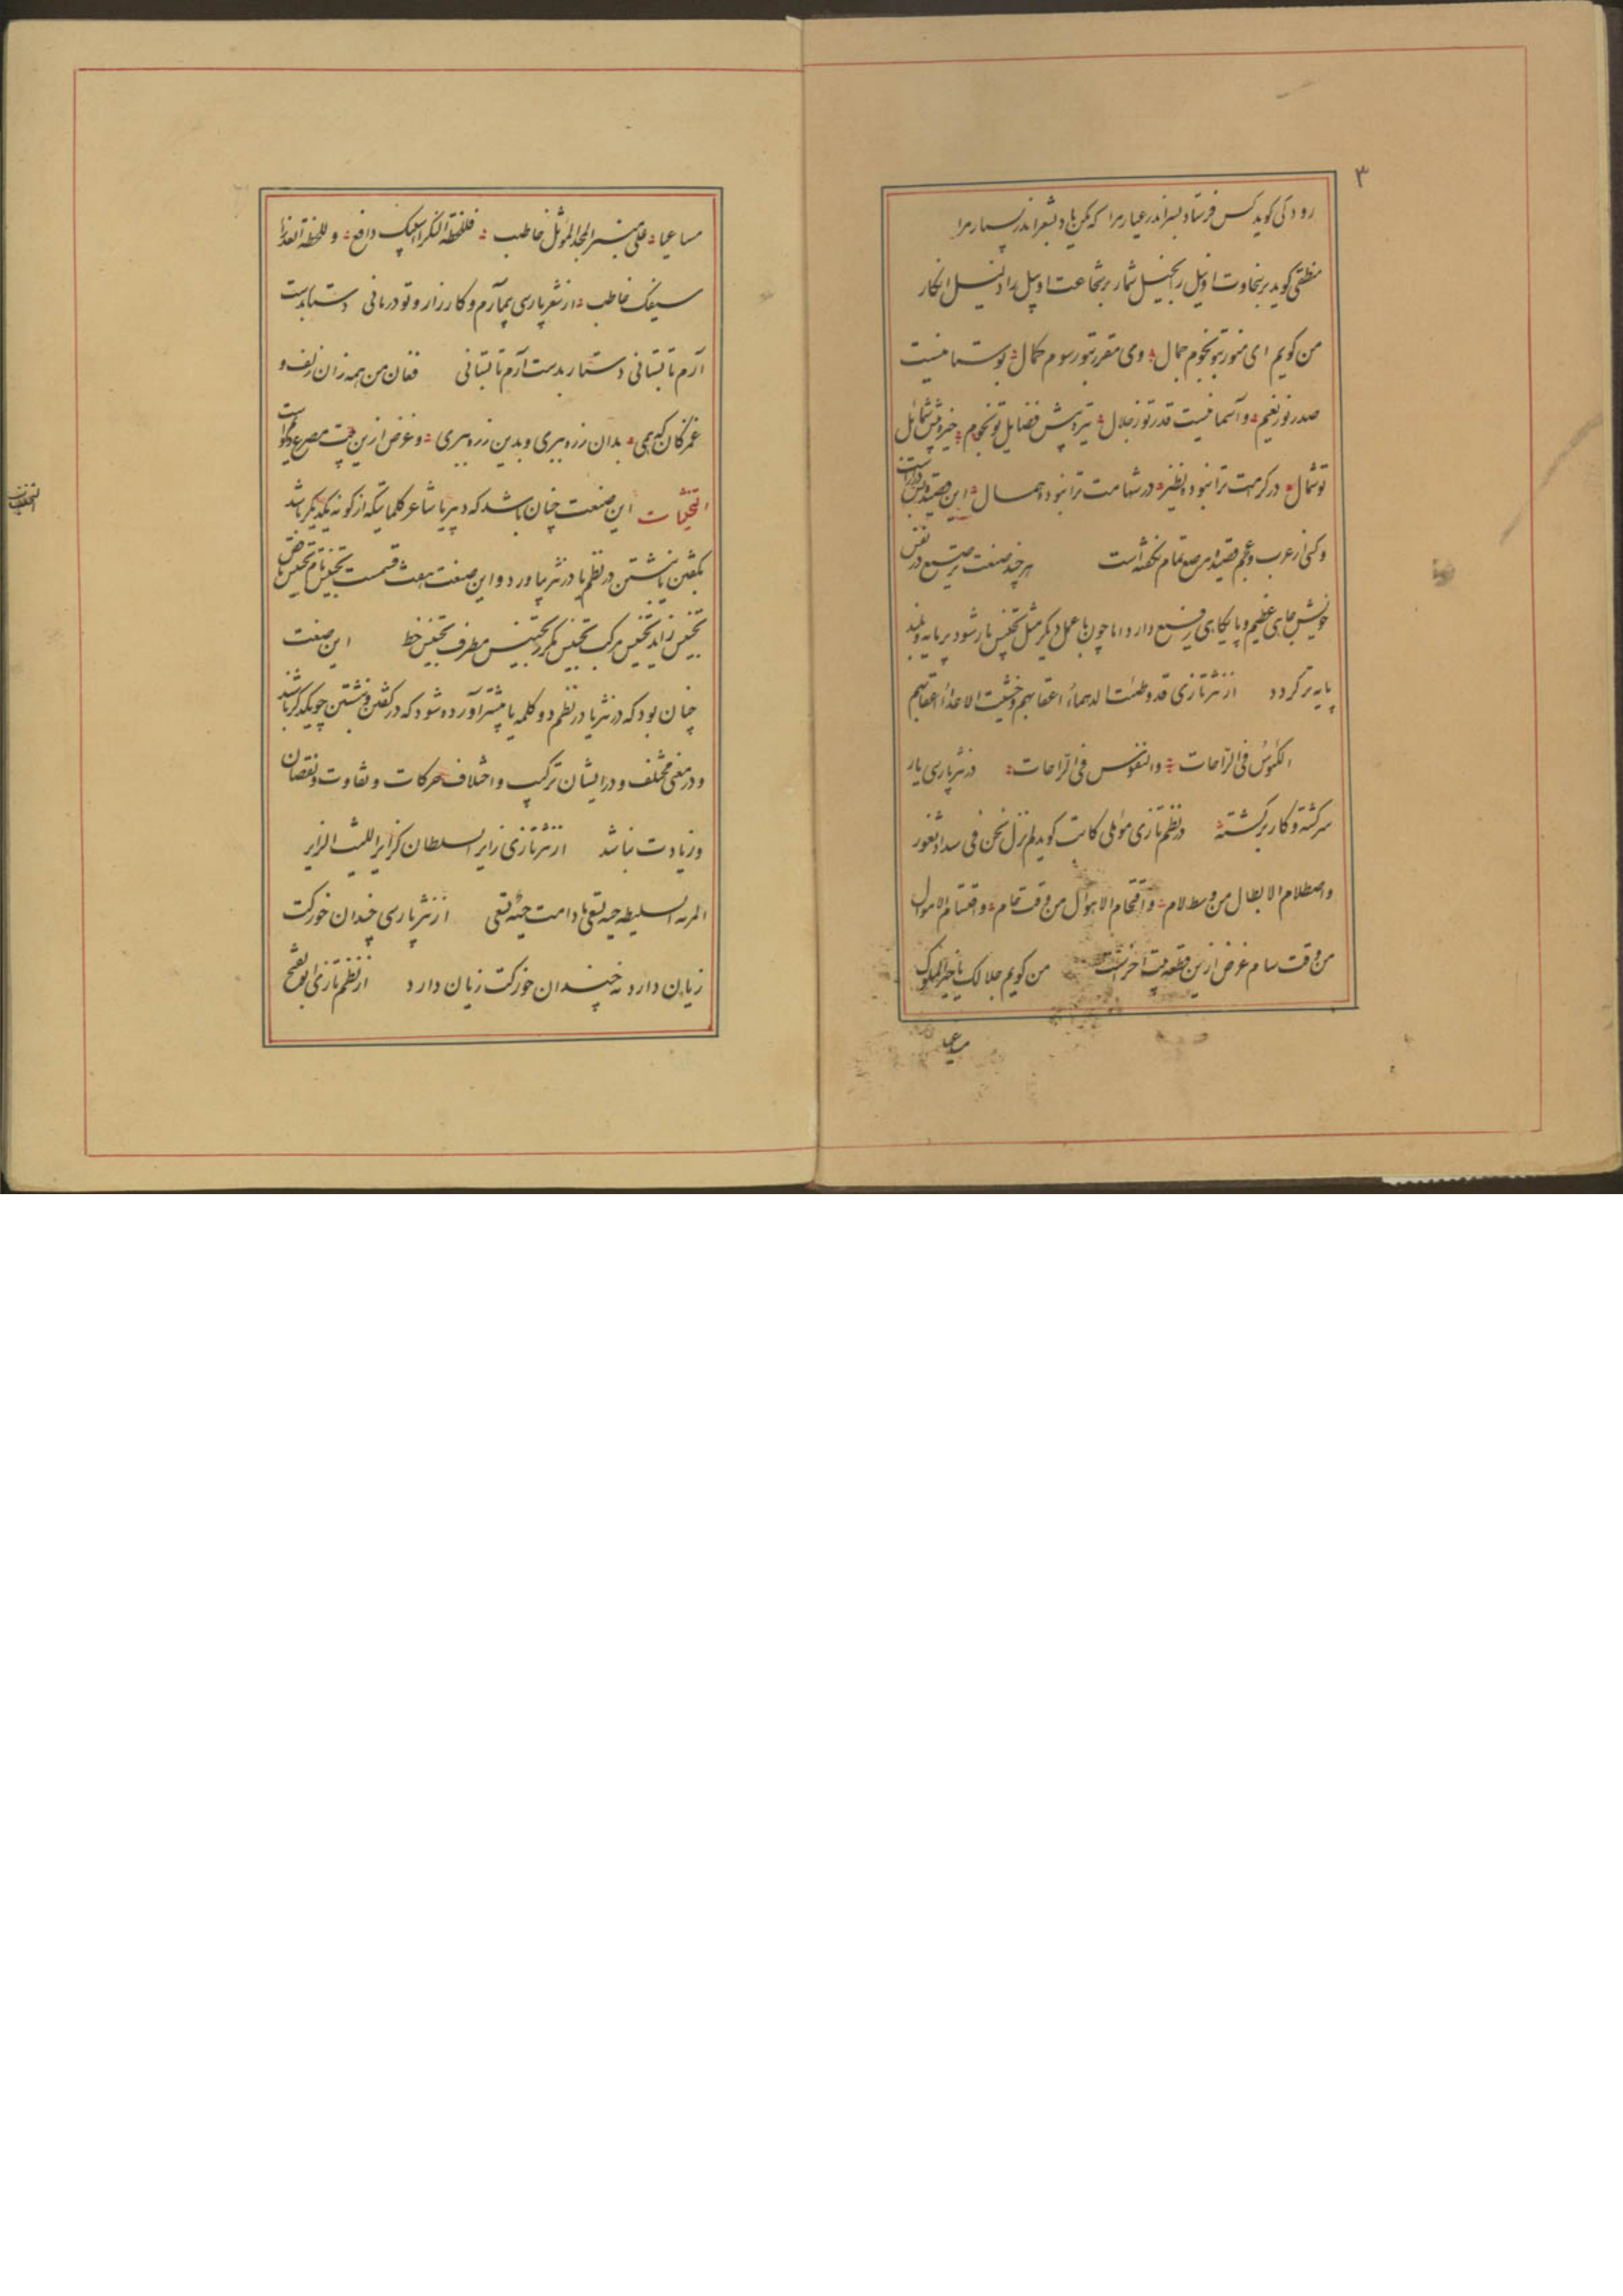 ۳
رودکی کوید کس فرستاد بسر اندر عیار مرا که مکن یاد بشعر اندر بسیار مرا
منطقی کوید بر سخاوت او نیل را بخیل شمار بر شجاعت او پیل را ذلیل انکار
من کویم ای منور بتو نجوم جمال وی مقرر بتو رسوم کمال بوستانیست
صدر تو ز نعیم و آسمانیست قدر تو ز جلال تیره پیش فضایل تو نجوم خیره پیش شمائل
تو شمال در کرامت ترا نبوده نظیر در شهامت ترا نبوده همال این قصیده
و کس از عرب و عجم قصیده مرصع تمام نکفته است هر چند صنعت ترصیع در نفس
خویش جای عظیم و پایکاهی رفیع دارد اما چون با عمل دیکر مثل تجنیس یار شود پر مایه و بلند
پایه تر کردد از نثر تازی قد وطئت الدهماء اعقابهم و خشیت الاعداء اعقابهم
الکؤس فی الراحات والنفوس فی الراحات در نثر پارسی یار
سرکشته و کار برکشته در نظم تازی موملی کاتب کوید لم نزل نحن فی سداد ثغور
واصطلام الابطال من وسط لام و اقتحام الاهوال من وقت حام و اقتسام الاموال
من وقت سام غرض ازین قطعه بیت آخرست من کویم جلالک یا خیر الملوک
مساعیا
مساعیا علی منبر المجد المؤثل خاطب فللخطة النکراء سیبک دافع وللخطة العذراء
سیفک خاطب از شعر پارسی بیمارم و کارزار و تو درمانی دستار بدست
آرم تا بستانی دستار بدست آرم تا بستانی فغان من همه زان زلف و
غمزکان که همی بدان زره ببری و بدین زره ببری و غرض ازین بیت مصرع دوم است
التجنیسات این صنعت چنان باشد که دبیر یا شاعر کلماتیکه از کونه یکدیکر باشد
بکفتن یا نبشتن در نظم یا در نثر بیاورد و این صنعت هفت قسمت تجنیس تام تجنیس ناقص
تجنیس زاید تجنیس مرکب تجنیس مکرر تجنیس مطرف تجنیس خط این صنعت
چنان بود که در نثر یا در نظم دو کلمه یا بیشتر آورده شود که در کفتن و نبشتن چو یکدیکر باشند
و در معنی مختلف و در ایشان ترکیب و اختلاف حرکات و تفاوت و نقصان
و زیادت نباشد از نثر تازی زایر السلطان کزایر اللیث الزایر
المرءة السلیطه حیه تسعی مادامت حیة تسعی از نثر پارسی چندان خورکت
زیان دارد نه چندان خورکت زیان دارد از نظم تازی ابوالفتح